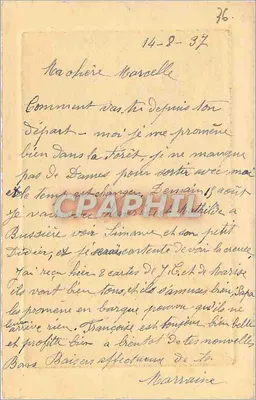 76.
14-8-37
Ma chère Marcelle
Comment vas tu depuis ton
départ - moi je me promène
bien dans la forêt, je ne manque
pas de Dames pour sortir avec moi
et le temps est changé. Demain 15 août
Je vais
CPAPHIL
à
Bussière voir Simone et son petit
Didier, et je serais contente de voir la creuse
J'ai reçu hier 2 cartes de J.C. et de Maryse
ils vont bien tous, et ils s'amusent bien,
les promène en barque pourvu qu'ils ne
arrive rien. Françoise est toujours bien belle
et profite bien à bientôt de tes nouvelles
Bons Baisers affectueux de ta
Marraine